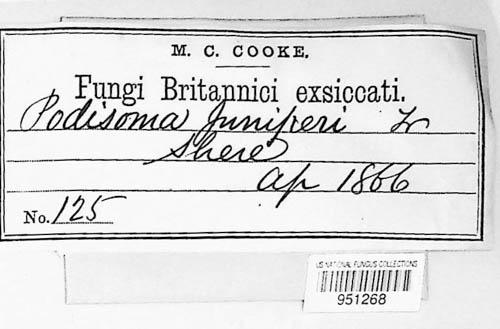 M. C. COOKE.
Fungi Britannici exsiccati.
Podisoma Juniperi Fr
Shere
Ap 1866
No. 125
US NATIONAL FUNGUS COLLECTIONS
951268